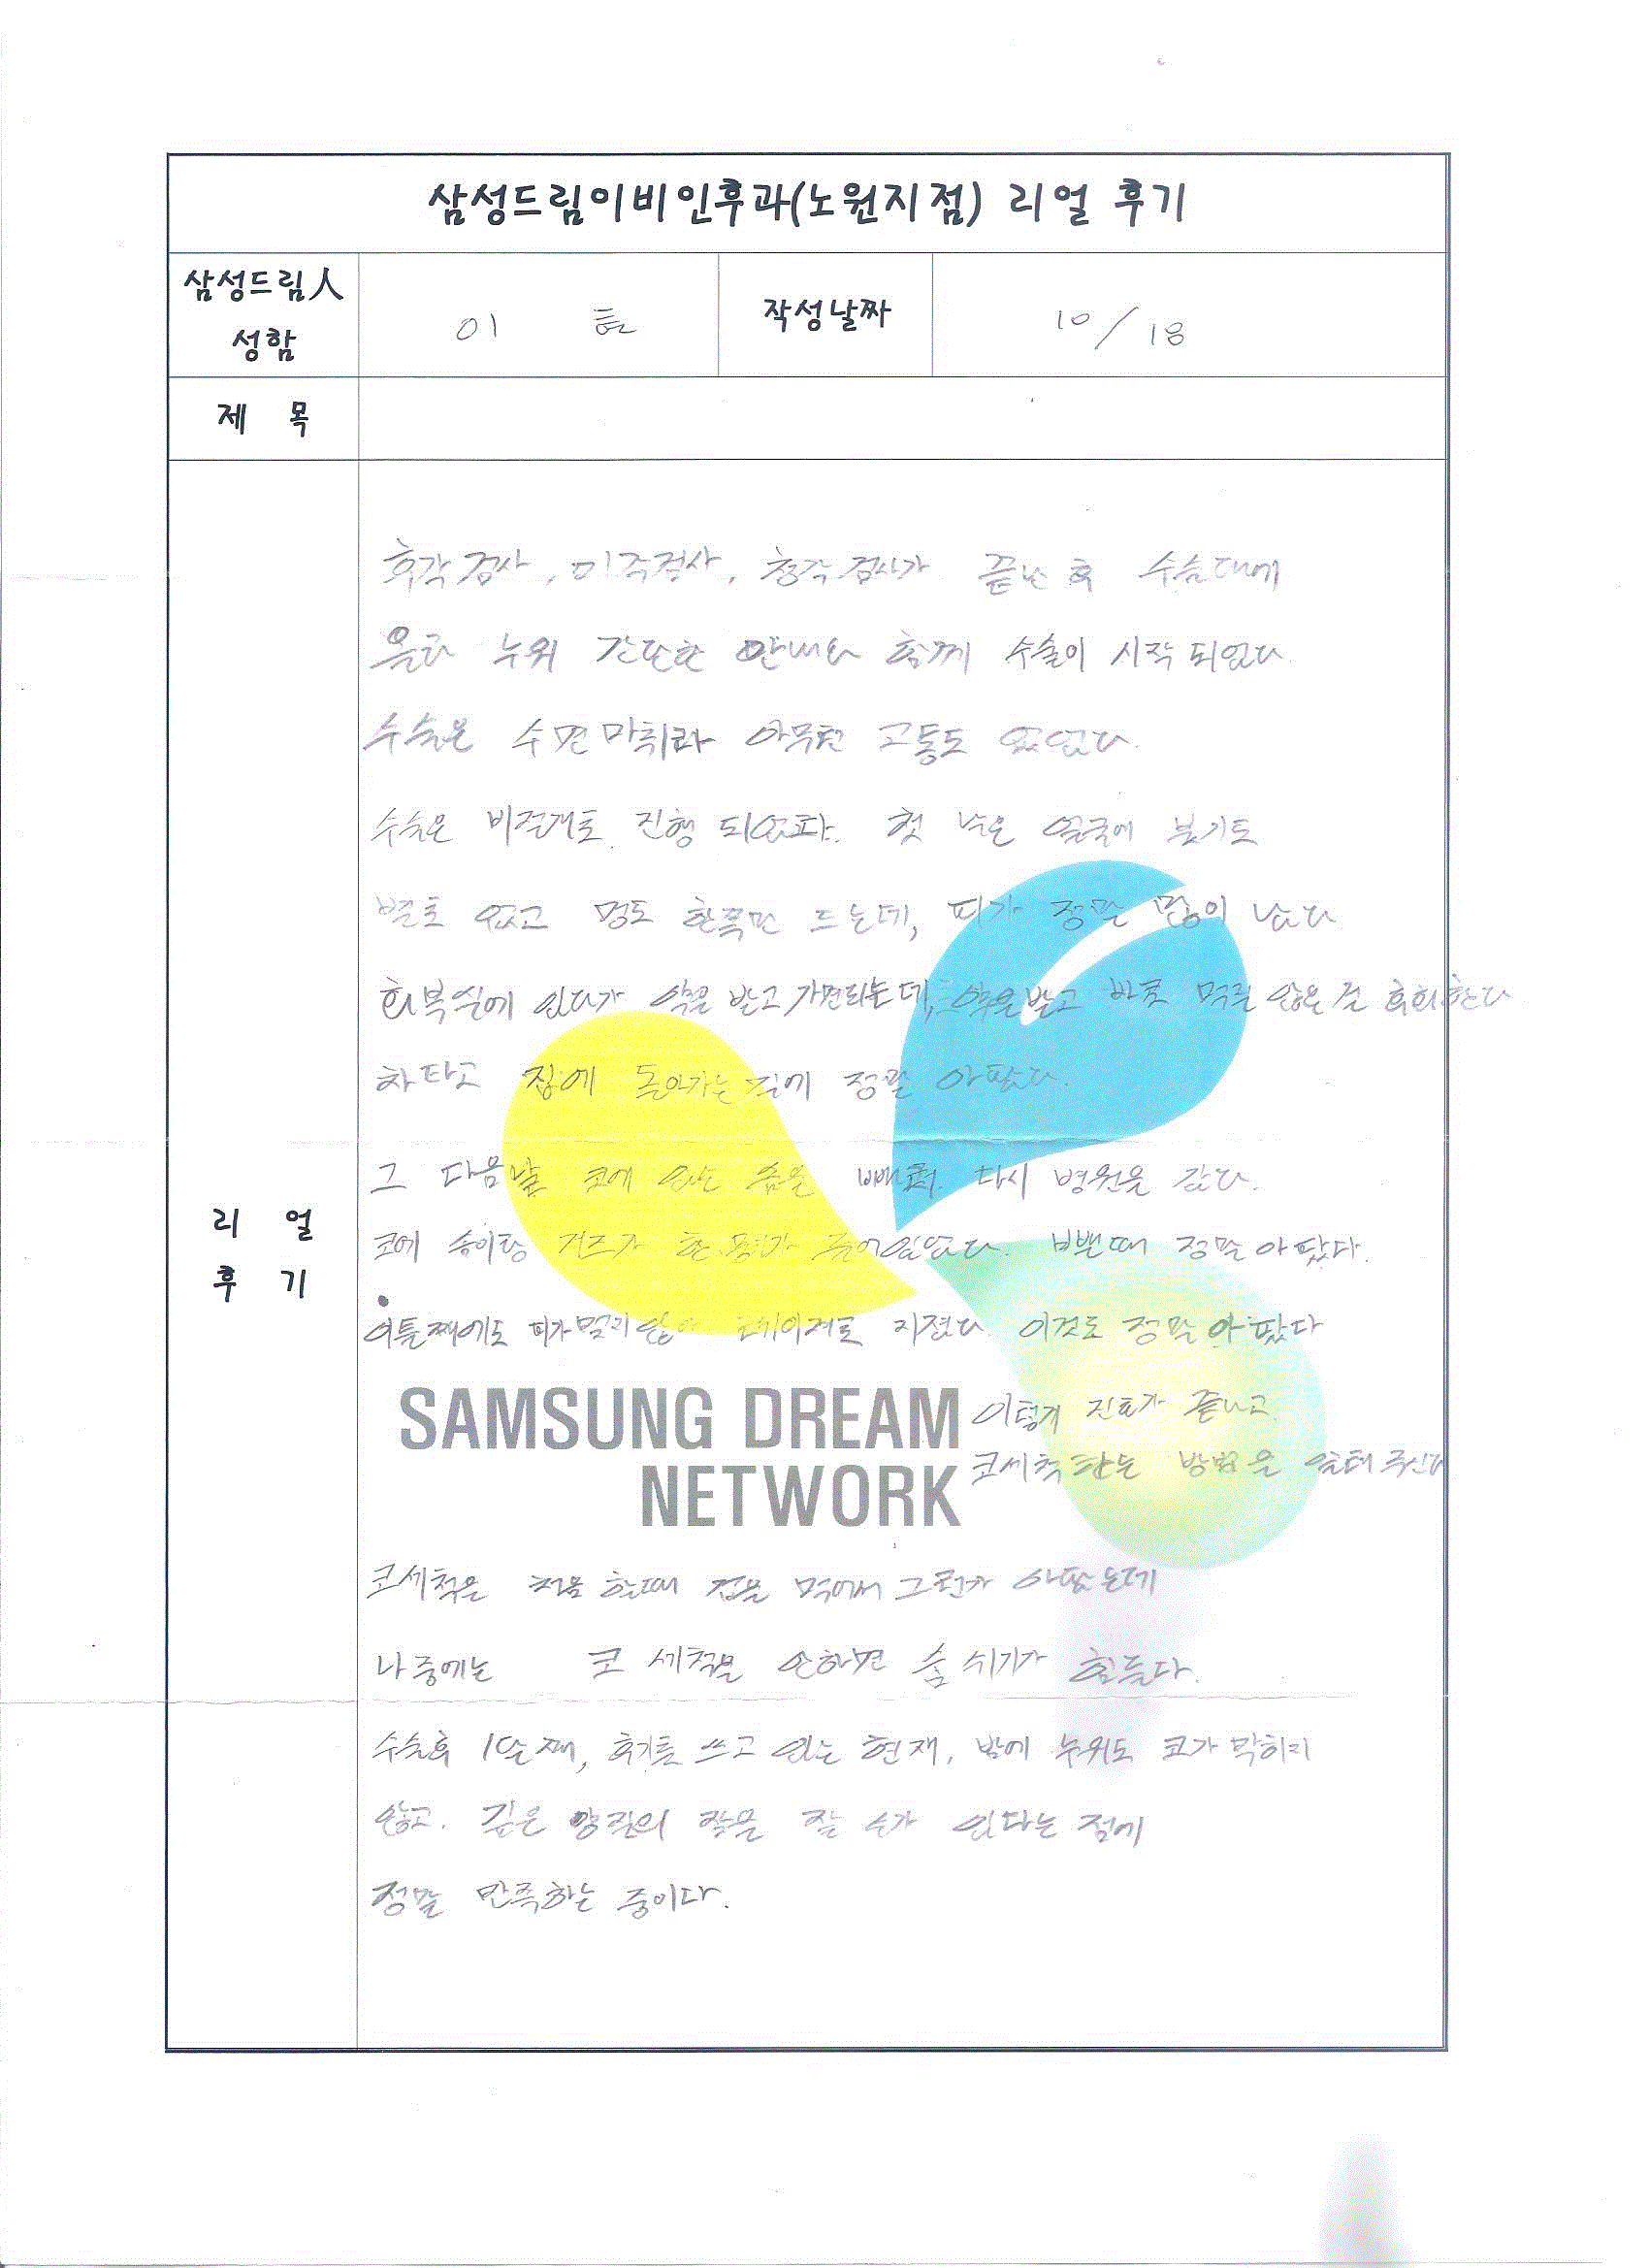 삼성드림이비인후과(노원지점) 리얼 후기
삼성드림人
성함
이
작성날짜
10/18
제 목
후각검사, 미각검사, 청각검사가 끝난 후 수술대에
올라 누워 간단한 안내와 함께 수술이 시작 되었다.
수술은 수면마취라 아무런 고통도 없었다.
수술은 비절개로 진행 되었다. 첫 날은 얼굴에 붓기도
별로 없고 멍도 한쪽만 드는데, 피가 정말 많이 났다
회복실에 있다가 약을 받고 가면되는데, 약을 받고 바로 먹지 않은걸 후회한다
차타고 집에 돌아가는 길에 정말 아팠다.
그 다음날 코에 있는 솜을 빼러 다시 병원을 갔다.
코에 솜이랑 거즈가 한 가 들어있었다. 뺄때 정말 아팠다.
이틀째에도 피가 멈추지 않아 레이저로 지졌다. 이것도 정말 아팠다
SAMSUNG DREAM
NETWORK
이렇게 진료가 끝나고
코세척 하는 방법을 알려 주신다
리 얼
후 기
코세척은 처음 할때 겁을 먹어서 그런가 아팠는데
나중에는 코 세척을 안하면 숨 쉬기가 힘들다.
수술후 1달째, 후기를 쓰고 있는 현재, 밤에 누워도 코가 막히지
않고. 깊은 양질의 잠을 잘 수가 있다는 점에
정말 만족하는 중이다.